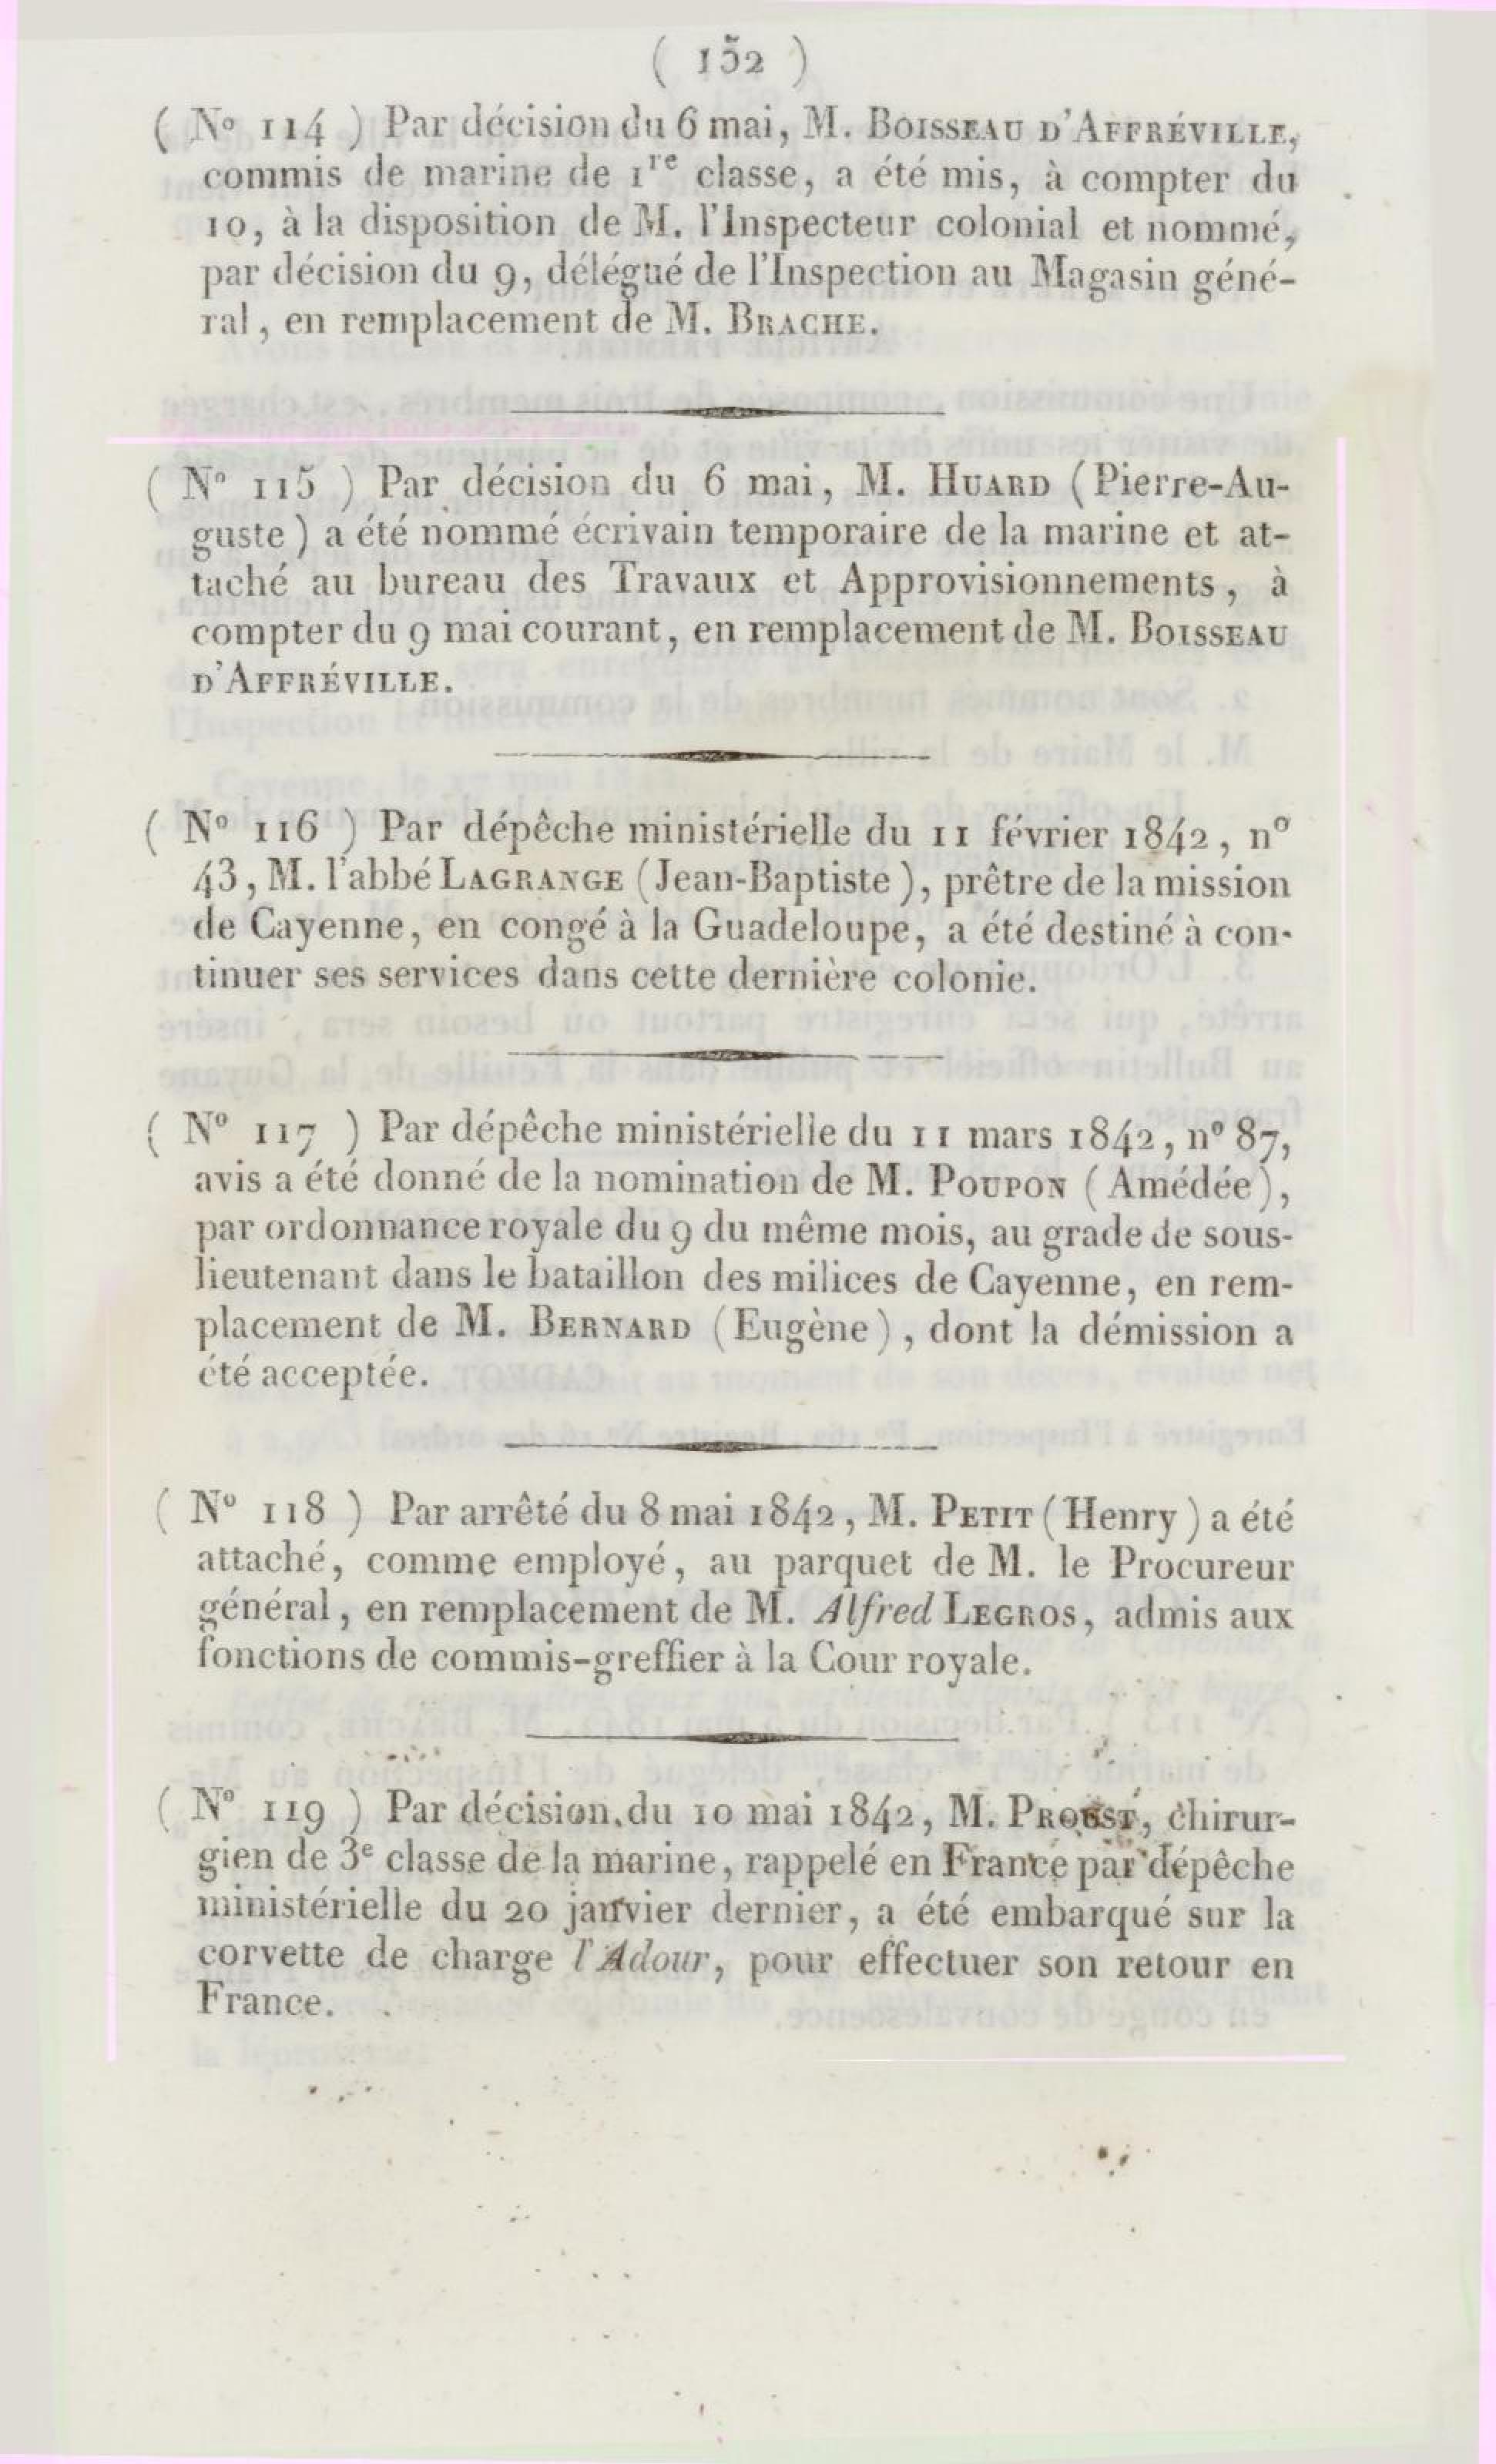 ( 152 )
( N° 114 ) Par décision du 6 mai, M. BOISSEAU D'AFFRÉVILLE,
commis de marine de 1re classe, a été mis, à compter du
10, à la disposition de M. l'Inspecteur colonial et nommé,
par décision du 9, délégué de l'Inspection au Magasin géné-
ral, en remplacement de M. BRACHE.
( N° 115 ) Par décision du 6 mai, M. HUARD (Pierre-Au-
guste) a été nommé écrivain temporaire de la marine et at-
taché au bureau des Travaux et Approvisionnements, à
compter du 9 mai courant, en remplacement de M. BOISSEAU
D'AFFRÉVILLE.
( N° 116 ) Par dépêche ministérielle du 11 février 1842, n°
43, M. l'abbé LAGRANGE (Jean-Baptiste), prêtre de la mission
de Cayenne, en congé à la Guadeloupe, a été destiné à con-
tinuer ses services dans cette dernière colonie.
( N° 117 ) Par dépêche ministérielle du 11 mars 1842, n° 87,
avis a été donné de la nomination de M. POUPON (Amédée),
par ordonnance royale du 9 du même mois, au grade de sous-
lieutenant dans le bataillon des milices de Cayenne, en rem-
placement de M. BERNARD (Eugène), dont la démission a
été acceptée.
( N° 118 ) Par arrêté du 8 mai 1842, M. PETIT (Henry) a été
attaché, comme employé, au parquet de M. le Procureur
général, en remplacement de M. Alfred LEGROS, admis aux
fonctions de commis-greffier à la Cour royale.
( N° 119 ) Par décision du 10 mai 1842, M. PROUST, chirur-
gien de 3e classe de la marine, rappelé en France par dépêche
ministérielle du 20 janvier dernier, a été embarqué sur la
corvette de charge l'Adour, pour effectuer son retour en
France.